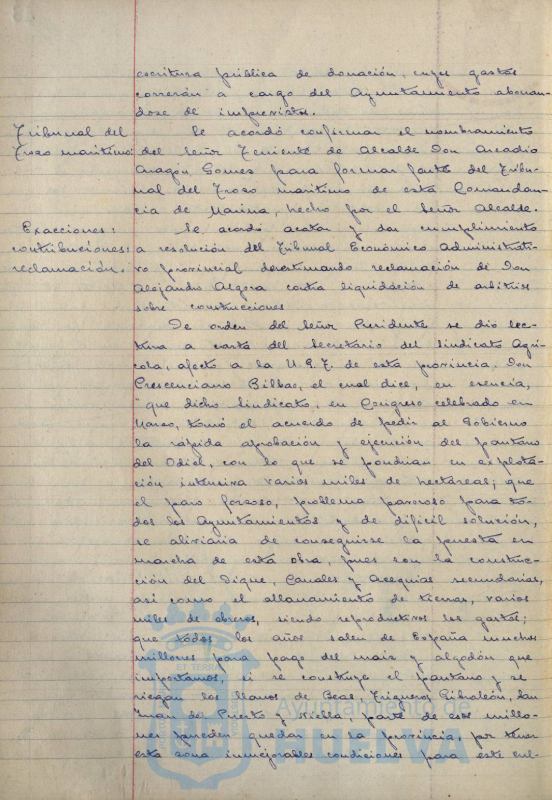 escritura pública de donación, cuyos gastos
correrán a cargo del Ayuntamiento abonan-
dose de imprevistos.
Tribunal del
Trozo marítimo:
Se acordó confirmar el nombramiento
del Señor Teniente de Alcalde Don Arcadio
Aragón Gomez para formar parte del Tribu-
nal del Trozo marítimo de esta Comandan-
cia de Marina, hecho por el Señor Alcalde.
Exacciones:
contribuciones:
reclamación.
Se acordó acatar y dar cumplimiento
a resolución del Tribunal Económico Administrati-
vo provincial desestimando reclamación de Don
Alejandro Algora contra liquidación de arbitrios
sobre construcciones
De orden del Señor Presidente se dio lec-
tura a carta del Secretario del Sindicato Agri-
cola, afecto a la U.G.T. de esta provincia, Don
Crescenciano Bilbao, el cual dice, en esencia,
"que dicho Sindicato, en Congreso celebrado en
Marzo, tomó el acuerdo de pedir al Gobierno
la rápida aprobación y ejecución del pantano
del Odiel, con lo que se pondrian en explota-
ción intensiva varios miles de hectareas; que
el paro forzoso, problema pavoroso para to-
dos los Ayuntamientos y de difícil solución,
se aliviaria de conseguirse la puesta en
marcha de esta obra, pues son la construc-
ción del Dique, Canales y Acequias secundarias,
asi como el allanamiento de tierras, varios
miles de obreros, siendo reproductivos los gastos;
que todos los años salen de España muchos
millones para pago del maiz y algodón que
importamos, si se construye el pantano y se
riegan los llanos de Beas, Trigueros, Gibraleón, San
Juan del Puerto y Niebla, parte de esos millo-
nes pueden quedar en la provincia, por tener
esta zona inmejorables condiciones para este cul-
Ayuntamiento de
HUELVA